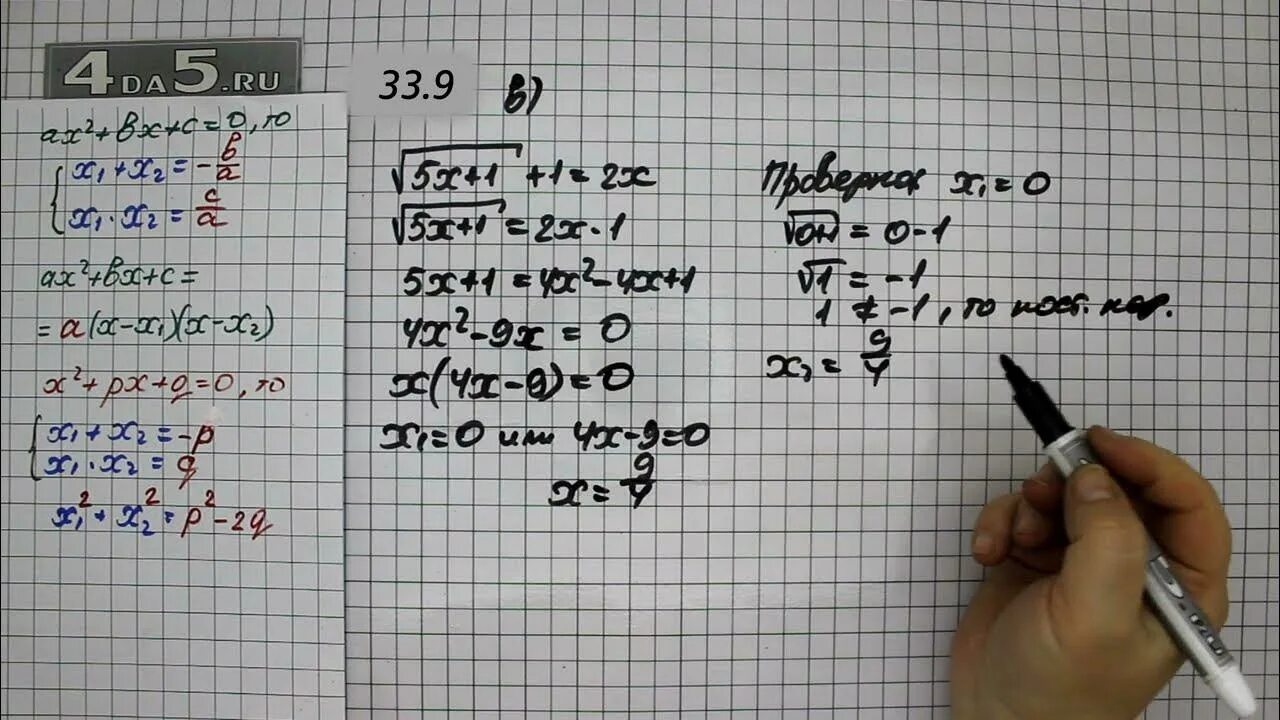 4DA5.RU
ax²+bx+c=0, то
x₁+x₂=-b/a
x₁·x₂=c/a
ax²+bx+c=
=a(x-x₁)(x-x₂)
x²+px+q=0, то
x₁+x₂=-p
x₁·x₂=q
x₁²+x₂²=p²-2q
33.9
в)
√(5x+1)+1=2x
√(5x+1)=2x-1
5x+1=4x²-4x+1
4x²-9x=0
x(4x-9)=0
x₁=0 или 4x-9=0
x=9/4
Проверка x₁=0
√(0+1)=0-1
√1=-1
1≠-1, то пост. кор.
x₂=9/4